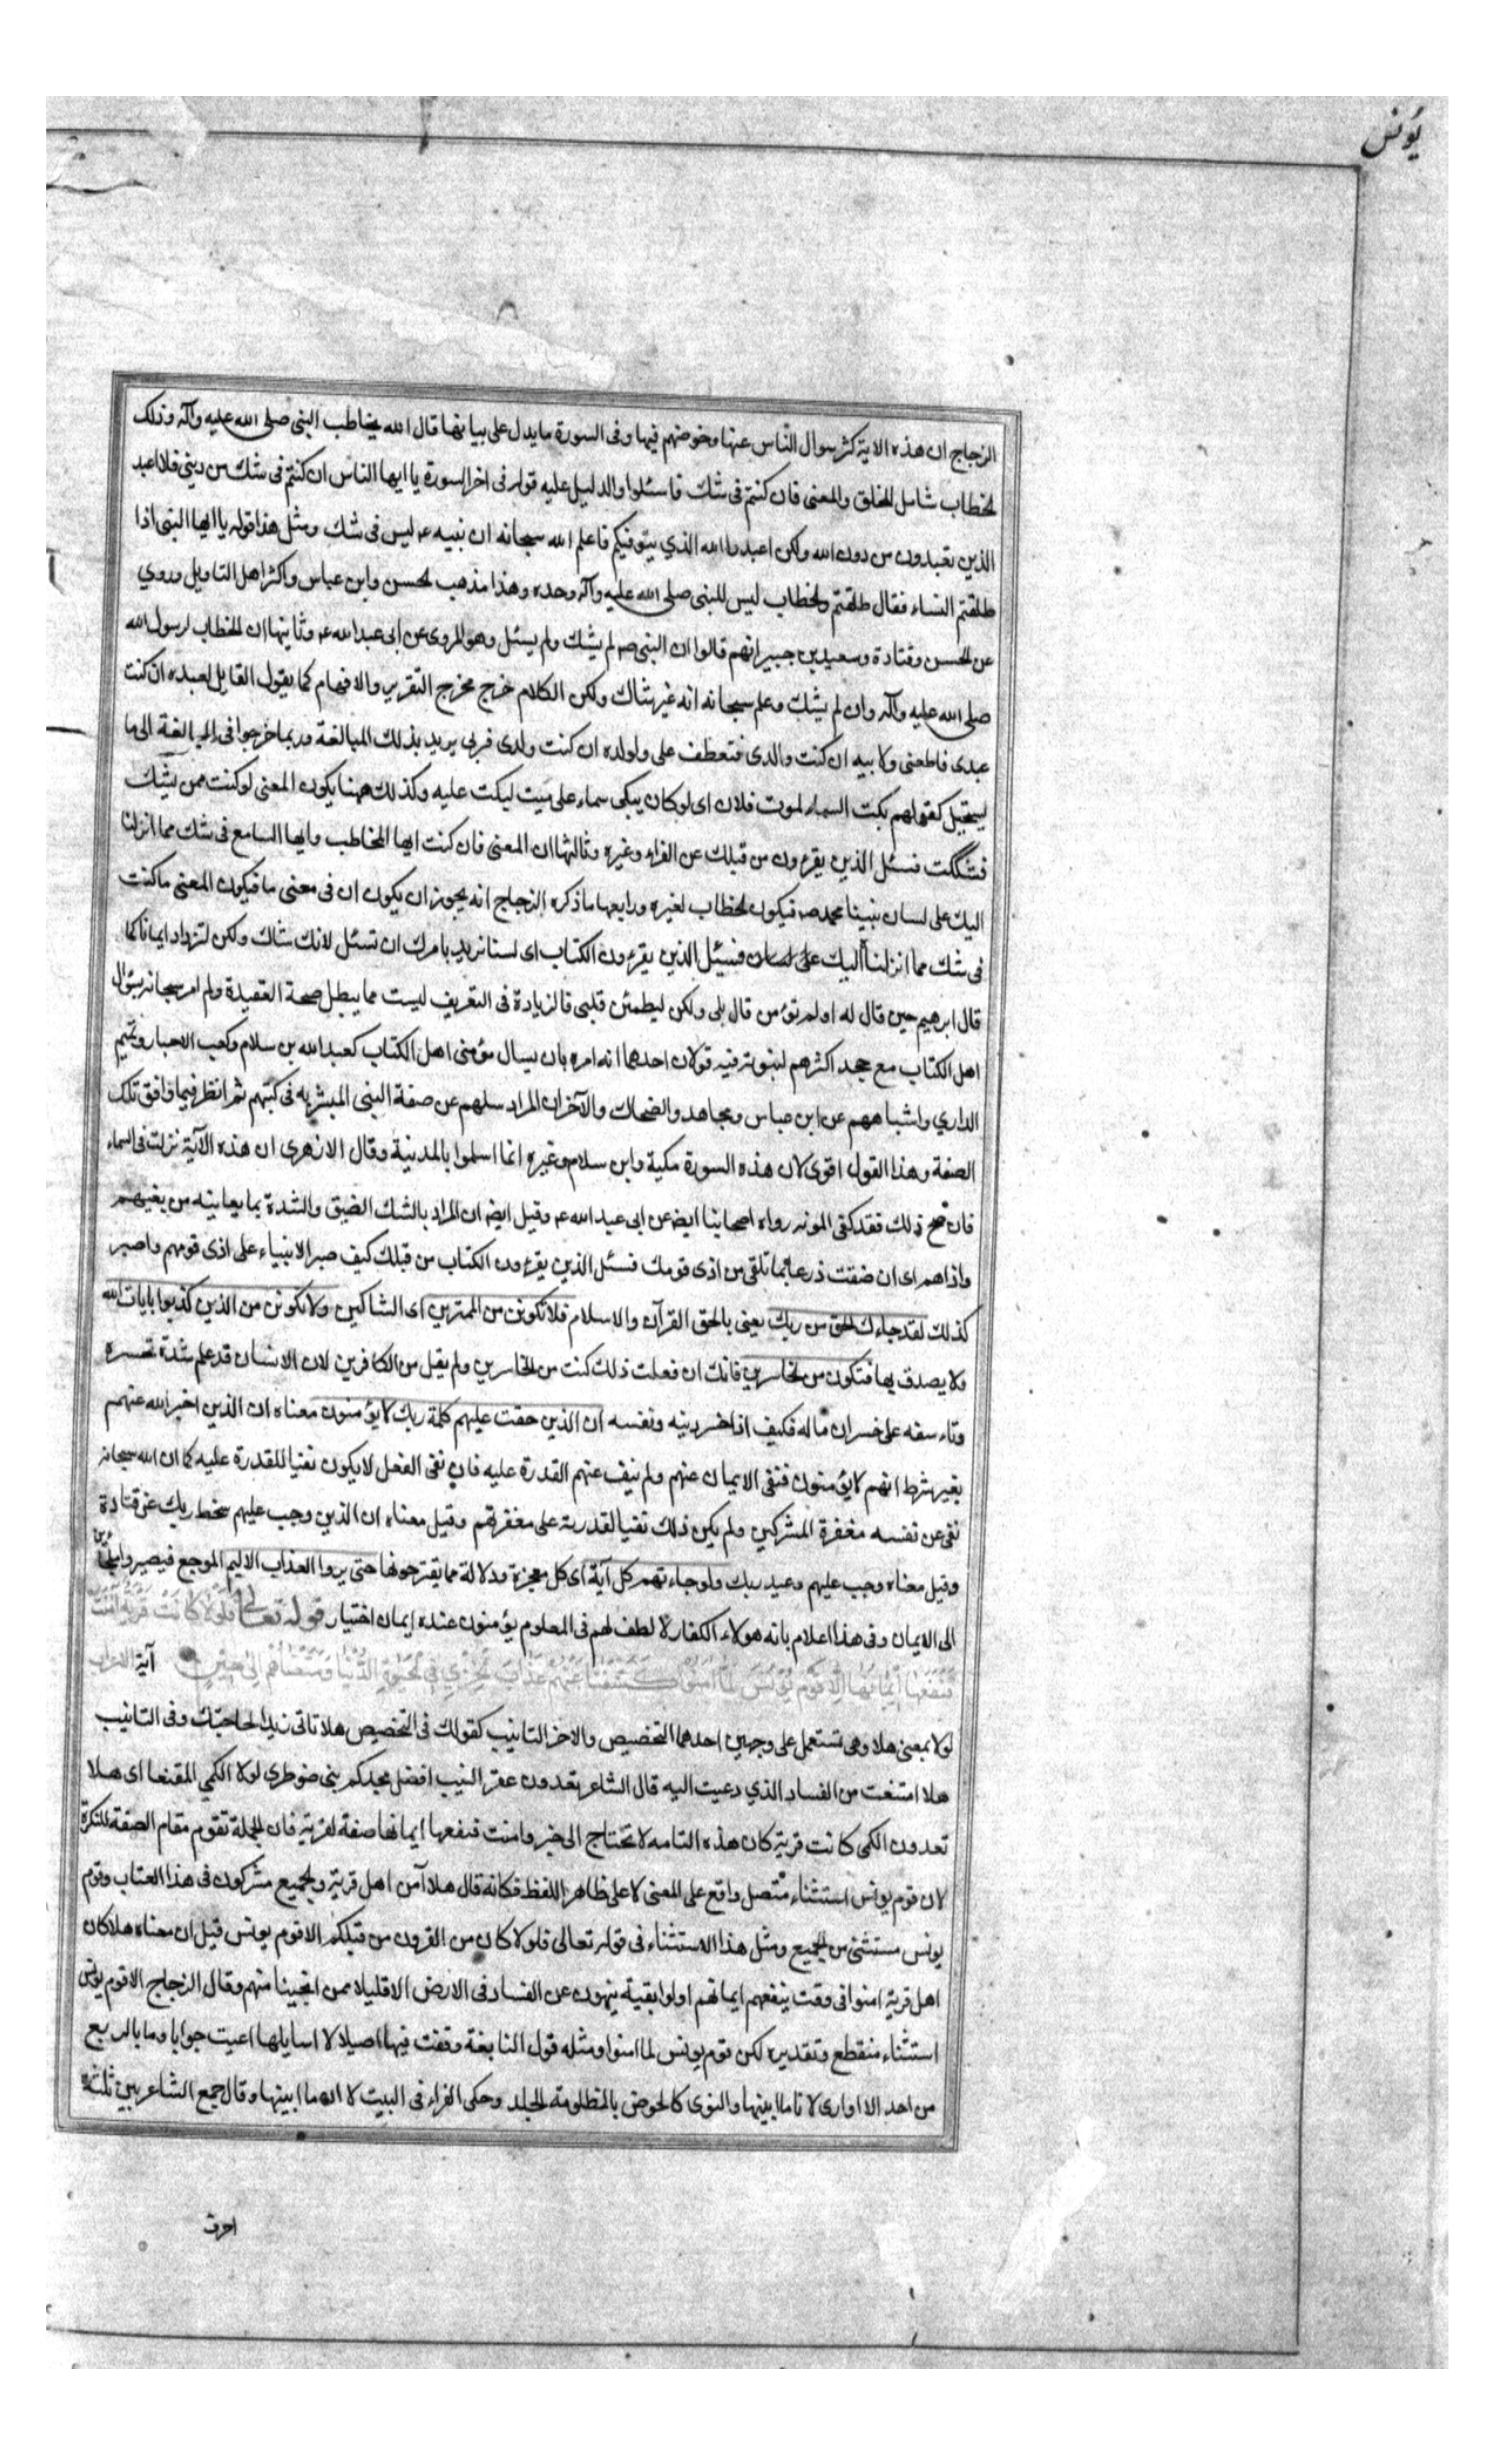 يونس
الزجاج ان هذه الاية كثر سوال الناس عنها وخوضهم فيها وفى السورة ما يدل على بيانها قال الله يخاطب النبى صلى الله عليه وآله وذلك
الخطاب شامل للخلق والمعنى فان كنتم فى شك فاسئلوا والدليل عليه قوله فى اخر السورة يا ايها الناس ان كنتم فى شك من دينى فلا اعبد
الذين تعبدون من دون الله ولكن اعبد الله الذي يتوفيكم فاعلم الله سبحانه ان نبيه ع ليس فى شك ومثل هذا قوله يا ايها النبى اذا
طلقتم النساء فقال طلقتم والخطاب ليس للنبى صلى الله عليه وآله وحده وهذا مذهب الحسن وابن عباس واكثر اهل التاويل وروي
عن الحسن وقتادة وسعيد بن جبير انهم قالوا ان النبى ص لم يشك ولم يسئل وهو المروى عن ابى عبد الله ع وثانيها ان الخطاب لرسول الله
صلى الله عليه وآله وان لم يشك وعلم سبحانه انه غير شاك ولكن الكلام خرج مخرج التقرير والافهام كما يقول القايل لعبده ان كنت
عبدى فاطعنى ولابيه ان كنت والدى فتعطف على ولولده ان كنت ولدى فبرنى يريد بذلك المبالغة وربما خرجوا فى المبالغة الى ما
يستحيل كقولهم بكت السماء لموت فلان اى لو كان يبكى سماء على ميت لبكت عليه وكذلك ههنا يكون المعنى لو كنت ممن يشك
فشككت فسئل الذين يقرءون من قبلك عن الفراء وغيره وثالثها ان المعنى فان كنت ايها المخاطب وايها السامع فى شك مما انزلنا
اليك على لسان نبينا محمد ص فيكون الخطاب لغيره ورابعها ما ذكره الزجاج انه يجوز ان يكون ان فى معنى ما فيكون المعنى ما كنت
فى شك مما انزلنا اليك على لسان فسئل الذين يقرءون الكتاب اى لسنا نريد بامرك ان تسئل لانك شاك ولكن لتزداد ايمانا كما
قال ابرهيم حين قال له اولم تؤمن قال بلى ولكن ليطمئن قلبى فالزيادة فى التعريف ليست مما يبطل صحة العقيدة ولم امر سبحانه بسؤال
اهل الكتاب مع جحد اكثرهم لنبوته فيه قولان احدهما انه امره بان يسال مؤمنى اهل الكتاب كعبد الله بن سلام وكعب الاحبار وتميم
الداري واشباههم عن ابن عباس ومجاهد والضحاك والآخر ان المراد سلهم عن صفة النبى المبشر به فى كتبهم ثم انظر فيما وافق تلك
الصفة وهذا القول اقوى لان هذه السورة مكية وابن سلام وغيره انما اسلموا بالمدينة وقال الازهرى ان هذه الآية نزلت فى السماء
فان صح ذلك فقد كفى المونه رواه اصحابنا ايض عن ابى عبد الله ع وقيل ايض ان المراد بالشك الضيق والشدة بما يعاينه من بغيهم
واذاهم اى ان ضقت ذرعا بما تلقى من اذى قومك فسئل الذين يقرءون الكتاب من قبلك كيف صبر الانبياء على اذى قومهم واصبر
كذلك لقد جاءك الحق من ربك يعنى بالحق القرآن والاسلام فلا تكونن من الممترين اى الشاكين ولا تكونن من الذين كذبوا بايات الله
ولا يصدق بها فتكون من الخاسرين فانك ان فعلت ذلك كنت من الخاسرين ولم يقل من الكافرين لان الانسان قد علم شدة تحسره
وتاسفه على خسران ماله فكيف اذا خسر دينه ونفسه ان الذين حقت عليهم كلمة ربك لا يؤمنون معناه ان الذين اخبر الله عنهم
بغير شرط انهم لا يؤمنون فنفى الايمان عنهم ولم ينف عنهم القدرة عليه فان نفى الفعل لا يكون نفيا للقدرة عليه كما ان الله سبحانه
نفى عن نفسه مغفرة المشركين ولم يكن ذلك نفيا لقدرته على مغفرتهم وقيل معناه ان الذين وجب عليهم سخط ربك عن قتادة
وقيل معناه وجب عليهم وعيد ربك ولو جاءتهم كل آية اى كل معجزة ودلالة مما يقترحونها حتى يروا العذاب الاليم الموجع فيصيروا ملجئين
الى الايمان وفى هذا اعلام بانه هولاء الكفار لا لطف لهم فى المعلوم يؤمنون عنده ايمان اختيار قوله تعالى فلولا كانت قرية آمنت
فنفعها ايمانها الا قوم يونس لما امنوا كشفنا عنهم عذاب الخزي فى الحيوة الدنيا ومتعناهم الى حين آية
لولا بمعنى هلا وهى تستعمل على وجهين احدهما التخصيص والاخر التانيب كقولك فى التخصيص هلا تاتى زيدا لحاجتك وفى التانيب
هلا امتنعت من الفساد الذي دعيت اليه قال الشاعر تعدون عقر النيب افضل مجدكم بنى ضوطرى لولا الكمي المقنعا اى هلا
تعدون الكمى كانت قرية كان هذه التامه لا تحتاج الى خبر وامنت فنفعها ايمانها صفة لقرية فان الجملة تقوم مقام الصفة للنكرة
لان قوم يونس استثناء متصل واقع على المعنى لا على ظاهر اللفظ فكانه قال هلا آمن اهل قرية والجميع مشركون فى هذا العتاب وقوم
يونس مستثنى من الجميع ومثل هذا الاستثناء فى قوله تعالى فلولا كان من القرون من قبلكم الا قوم يونس قيل ان معناه هلا كان
اهل قرية امنوا فى وقت ينفعهم ايمانهم اولوا بقية ينهون عن الفساد فى الارض الا قليلا ممن انجينا منهم وقال الزجاج الا قوم يونس
استثناء منقطع وتقديره لكن قوم يونس لما امنوا ومثله قول النابغة وقفت فيها اصيلا لا اسايلها اعيت جوابا وما بالربع
من احد الا اوارى لا ناما ابينها والنوى كالحوض بالمظلومة الجلد وحكى الفراء فى البيت لا ان ما ابينها وقال جمع الشاعر بين ثلثة
احرف